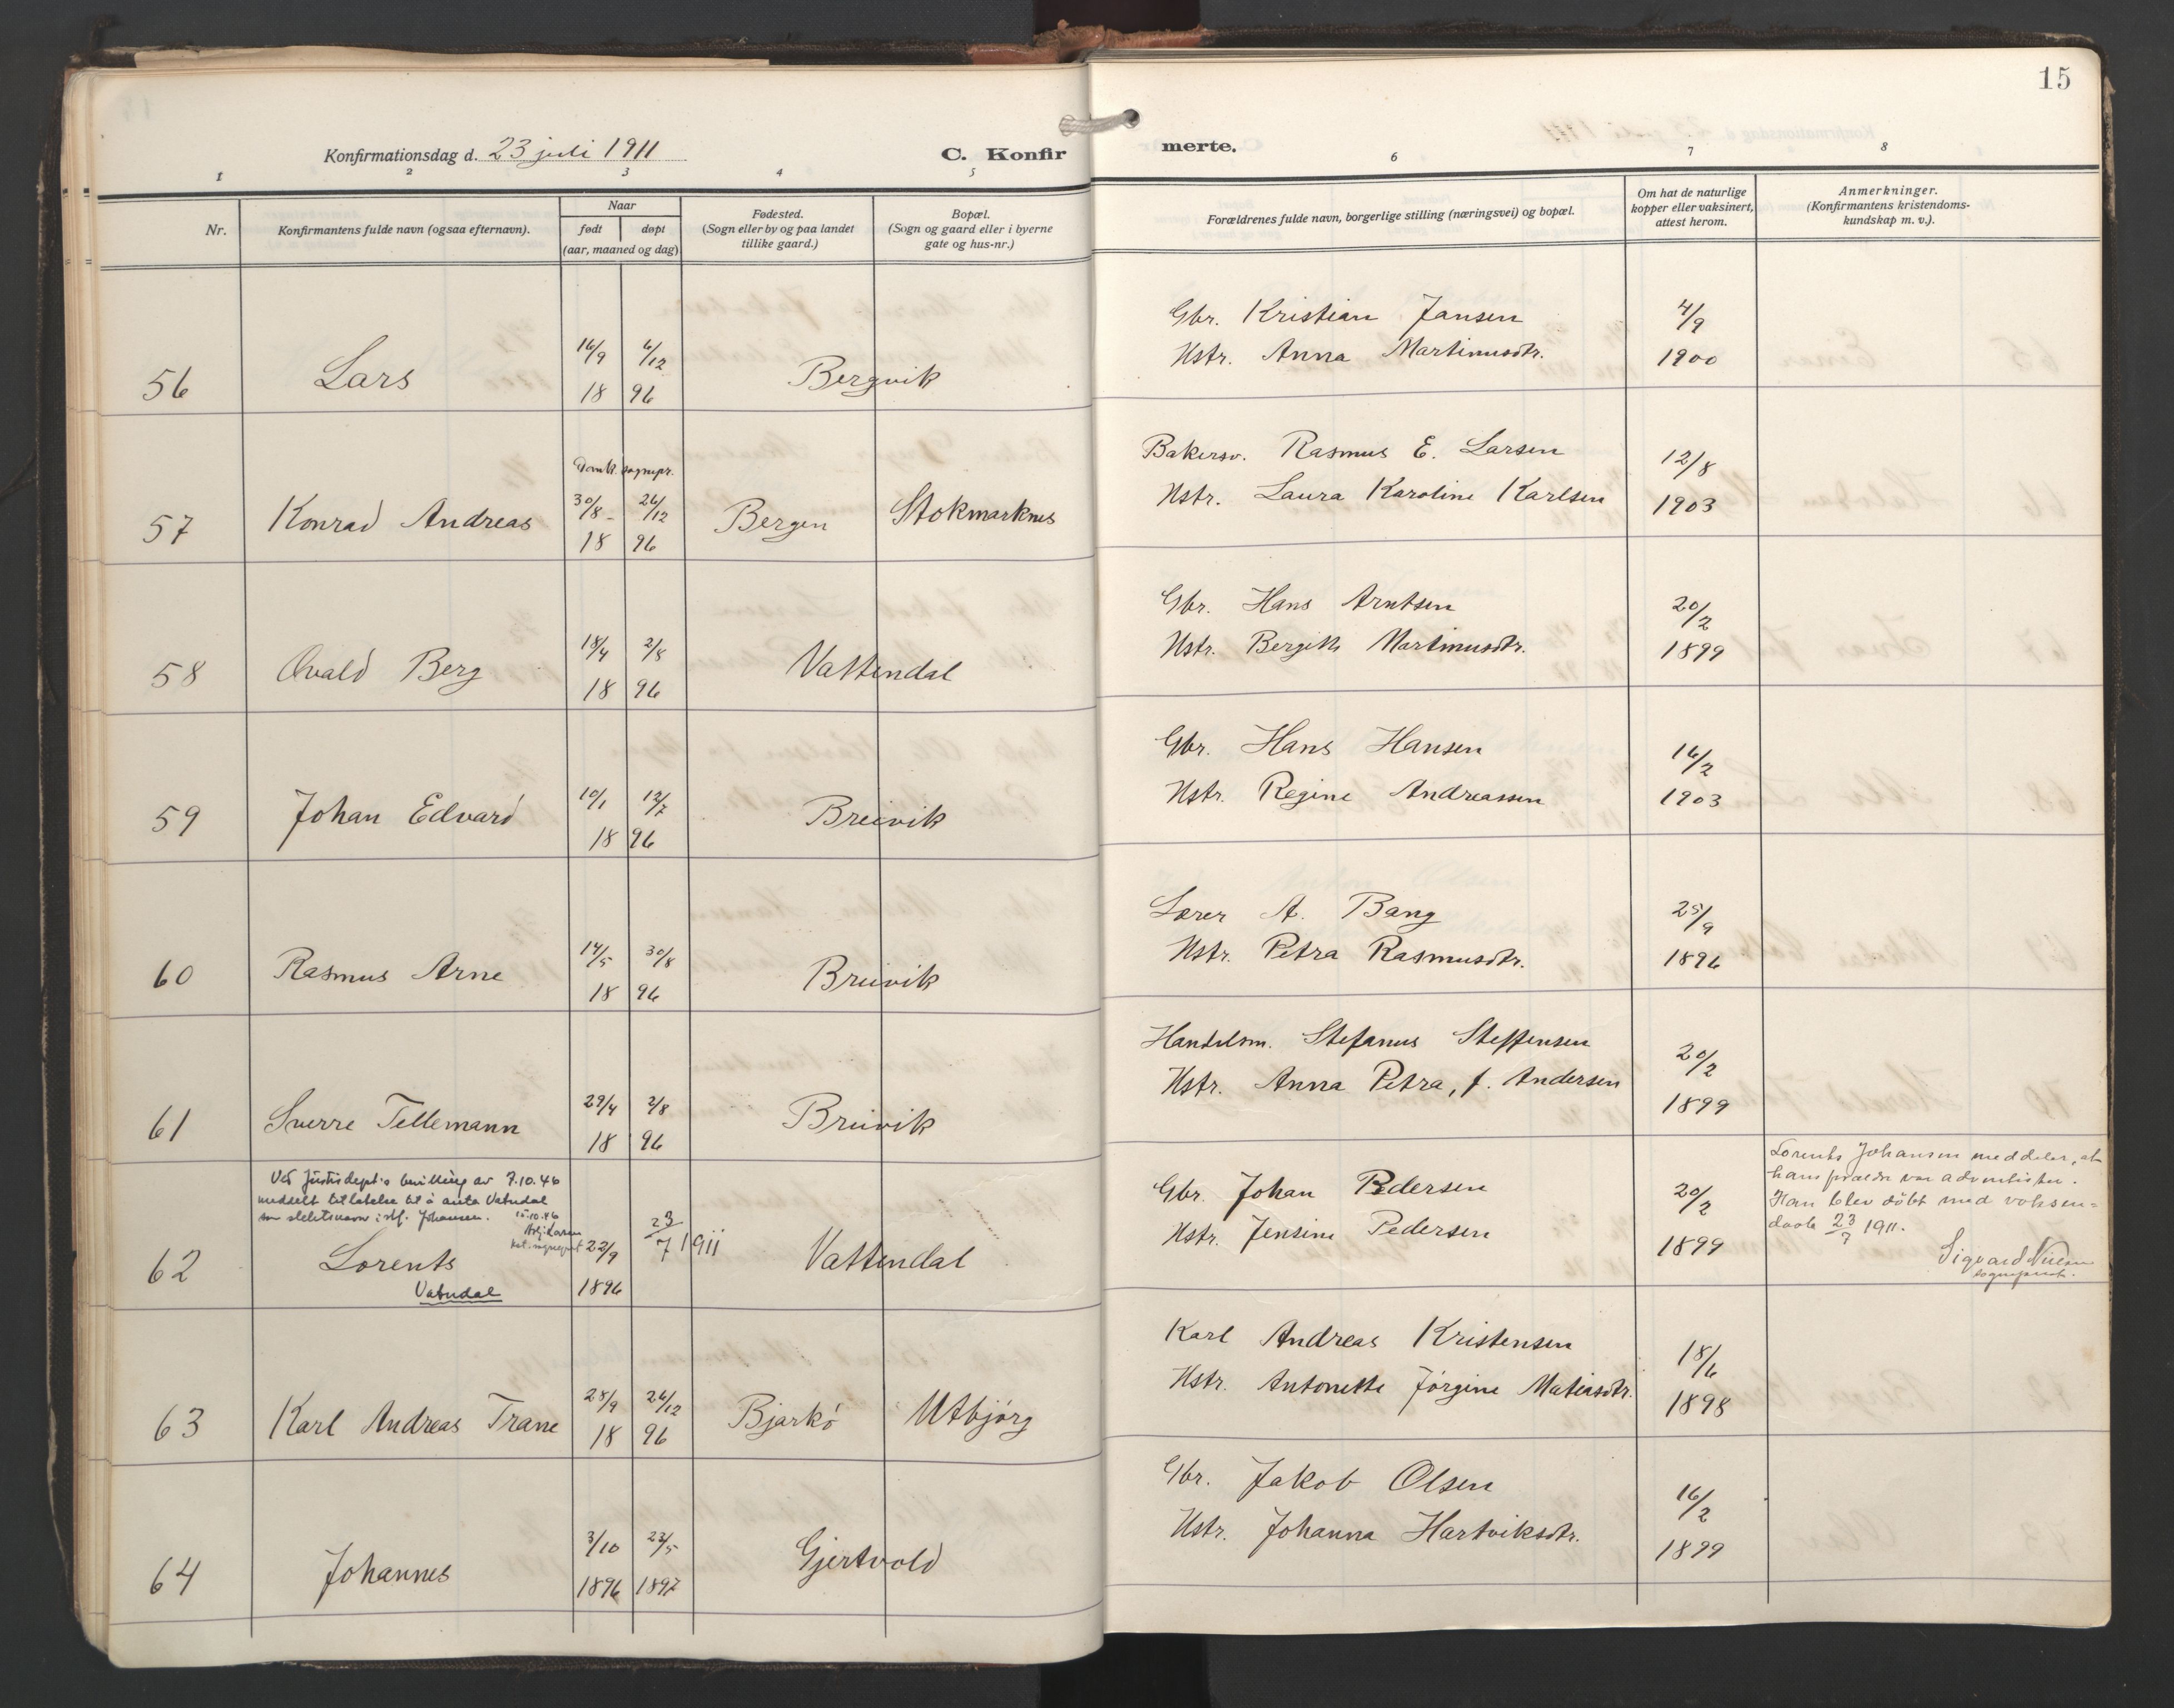 15
Konfirmationsdag d. 23 juli 1911
C. Konfirmerte.
1 2 3 4 5 6 7 8
Nr.
Konfirmantens fulde navn (ogsaa efternavn).
Naar
født døpt
(aar, maaned og dag)
Fødested.
(Sogn eller by og paa landet
tillike gaard.)
Bopæl.
(Sogn og gaard eller i byerne
gate og hus-nr.)
Forældrenes fulde navn, borgerlige stilling (næringsvei) og bopæl.
Om hat de naturlige
kopper eller vaksinert,
attest herom.
Anmerkninger.
(Konfirmantens kristendoms-
kundskap m. v.).
56 Lars 16/9 6/12 18 96 Bergvik
Gbr. Kristian Jansen
Hstr. Anna Martinusdtr.
4/9
1900
57 Konrad Andreas
Domk. sognepr.
30/8 - 26/12
18 96
Bergen Stokmarknes
Bakersv. Rasmus E. Larsen
Hstr. Laura Karoline Karlsen
12/8
1903
58 Ovald Berg 18/4 2/8 18 96 Vattendal
Gbr. Hans Arntsen
Hstr. Bergith Martinusdtr.
20/2
1899
59 Johan Edvard 10/1 12/7 18 96 Breivik
Gbr. Hans Hansen
Hstr. Regine Andreassen
16/2
1903
60 Rasmus Arne 14/5 30/8 18 96 Breivik
Lærer A. Bang
Hstr. Petra Rasmusdtr.
25/9
1896
61 Sverre Tellemann 29/4 2/8 18 96 Breivik
Handelsm. Stefanus Steffensen
Hstr. Anna Petra, f. Andersen
20/2
1899
Ved Justisdept's bevilling av 7.10.46
meddelt tillatelse til å anta Vatndal
som slektsnavn istf. Johansen.
15.10.46
62 Lorents
Vatndal
22/9
1896
23/7 1911
Vattendal
Gbr. Johan Pedersen
Hstr. Jensine Pedersen
20/2
1899
Lorents Johansen meddeler, at
hans forældre var adventister.
Han blev døbt med voksen=
daab 23/7 1911.
Sigvard Nielsen
sogneprest.
63 Karl Andreas Trane 28/9 26/12 18 96 Bjarkö Utbjörg
Karl Andreas Kristensen
Hstr. Antonette Jörgine Matiasdtr.
18/6
1898
64 Johannes 3/10 23/5 1896 1897 Gjertvold
Gbr. Jakob Olsen
Hstr. Johanna Hartviksdtr.
16/2
1899